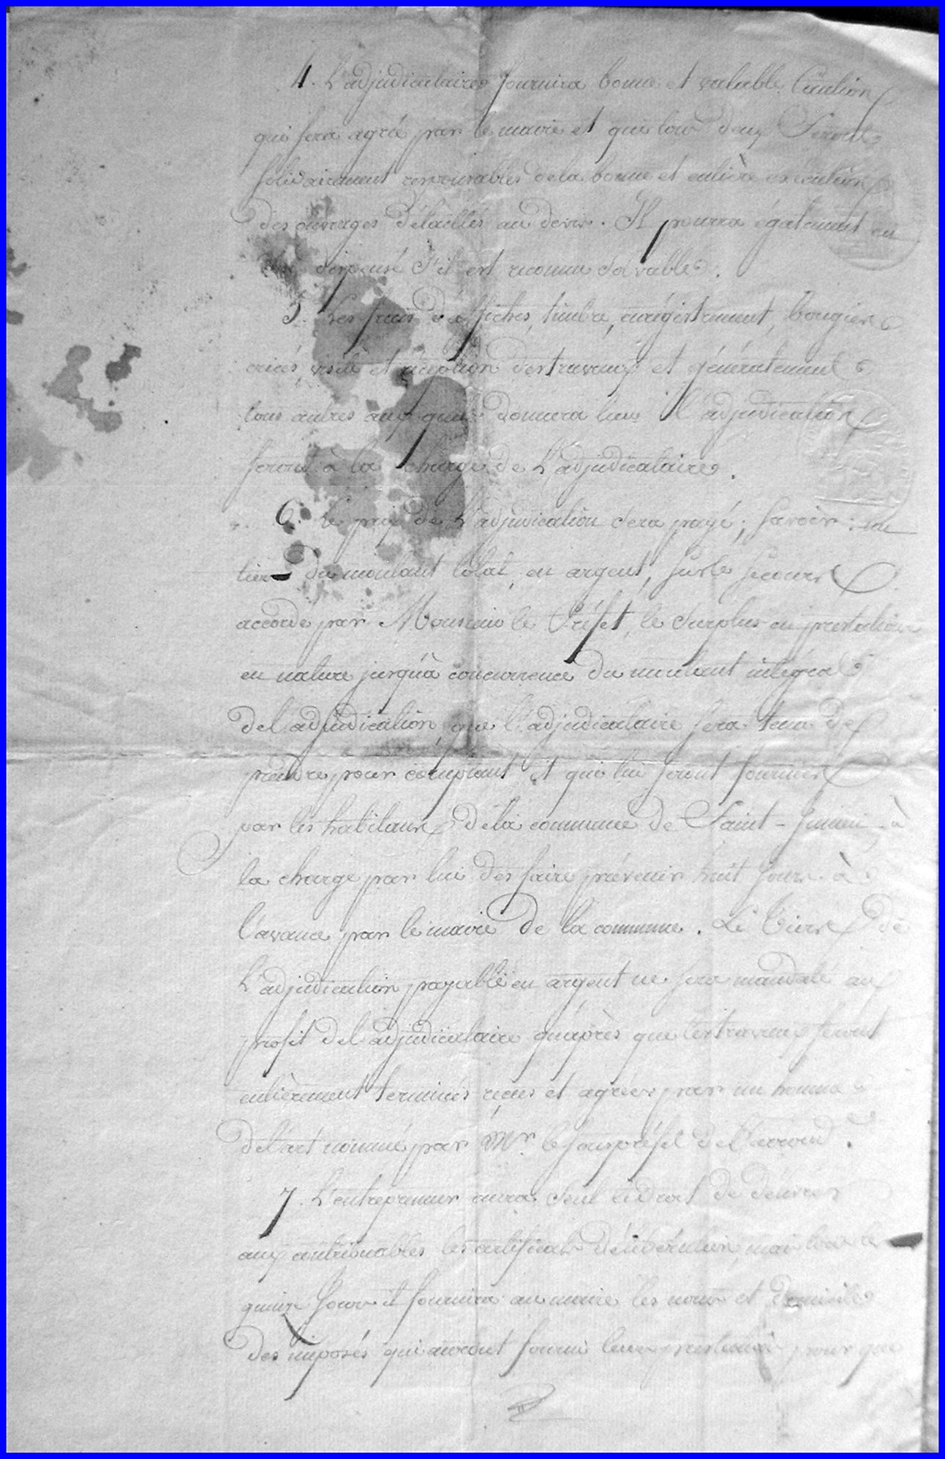 4. L'adjudicataire fournira bonne et valable Caution
qui sera agréé par le maire et qui tous deux Seront
solidairement responsables de la bonne et entière exécution
des ouvrages détaillés au devis. Il pourra également en
dispensé S'il est reconnu solvable.
5. Les frais d'affiches, timbre, enrégistrement, bougies
criées, visite et réception des travaux et généralement
tous autres aux quels donnera lieu l'adjudication
seront à la charge de L'adjudicataire.
6. Le prix de L'adjudication sera payé; Savoir: un
tiers du montant total, en argent, sur le secours
accordé par Monsieur le Préfet, le Surplus en prestations
en nature jusqu'à concurrence du montant intégral
de l'adjudication, que l'adjudicataire sera tenu de
prendre pour comptant et qui lui seront fournies
par les habitans de la commune de Saint-Junien, à
la charge par lui des faire prévenir huit jours à
l'avance par le maire de la commune. Le Tiers de
L'adjudication payable en argent ne sera mandaté au
profit de l'adjudicataire qu'après que les travaux seront
entièrement terminés reçus et agréés par un homme
de l'art nommé par Mr. le Sous préfet de l'arrond.
7. L'entrepreneur aura seul le droit de délivrer
aux contribuables les certificats de libération, mais tous les
quinze jours il fournira au maire les noms et Domicile
des imposés qui auront fourni leurs prestations pour que